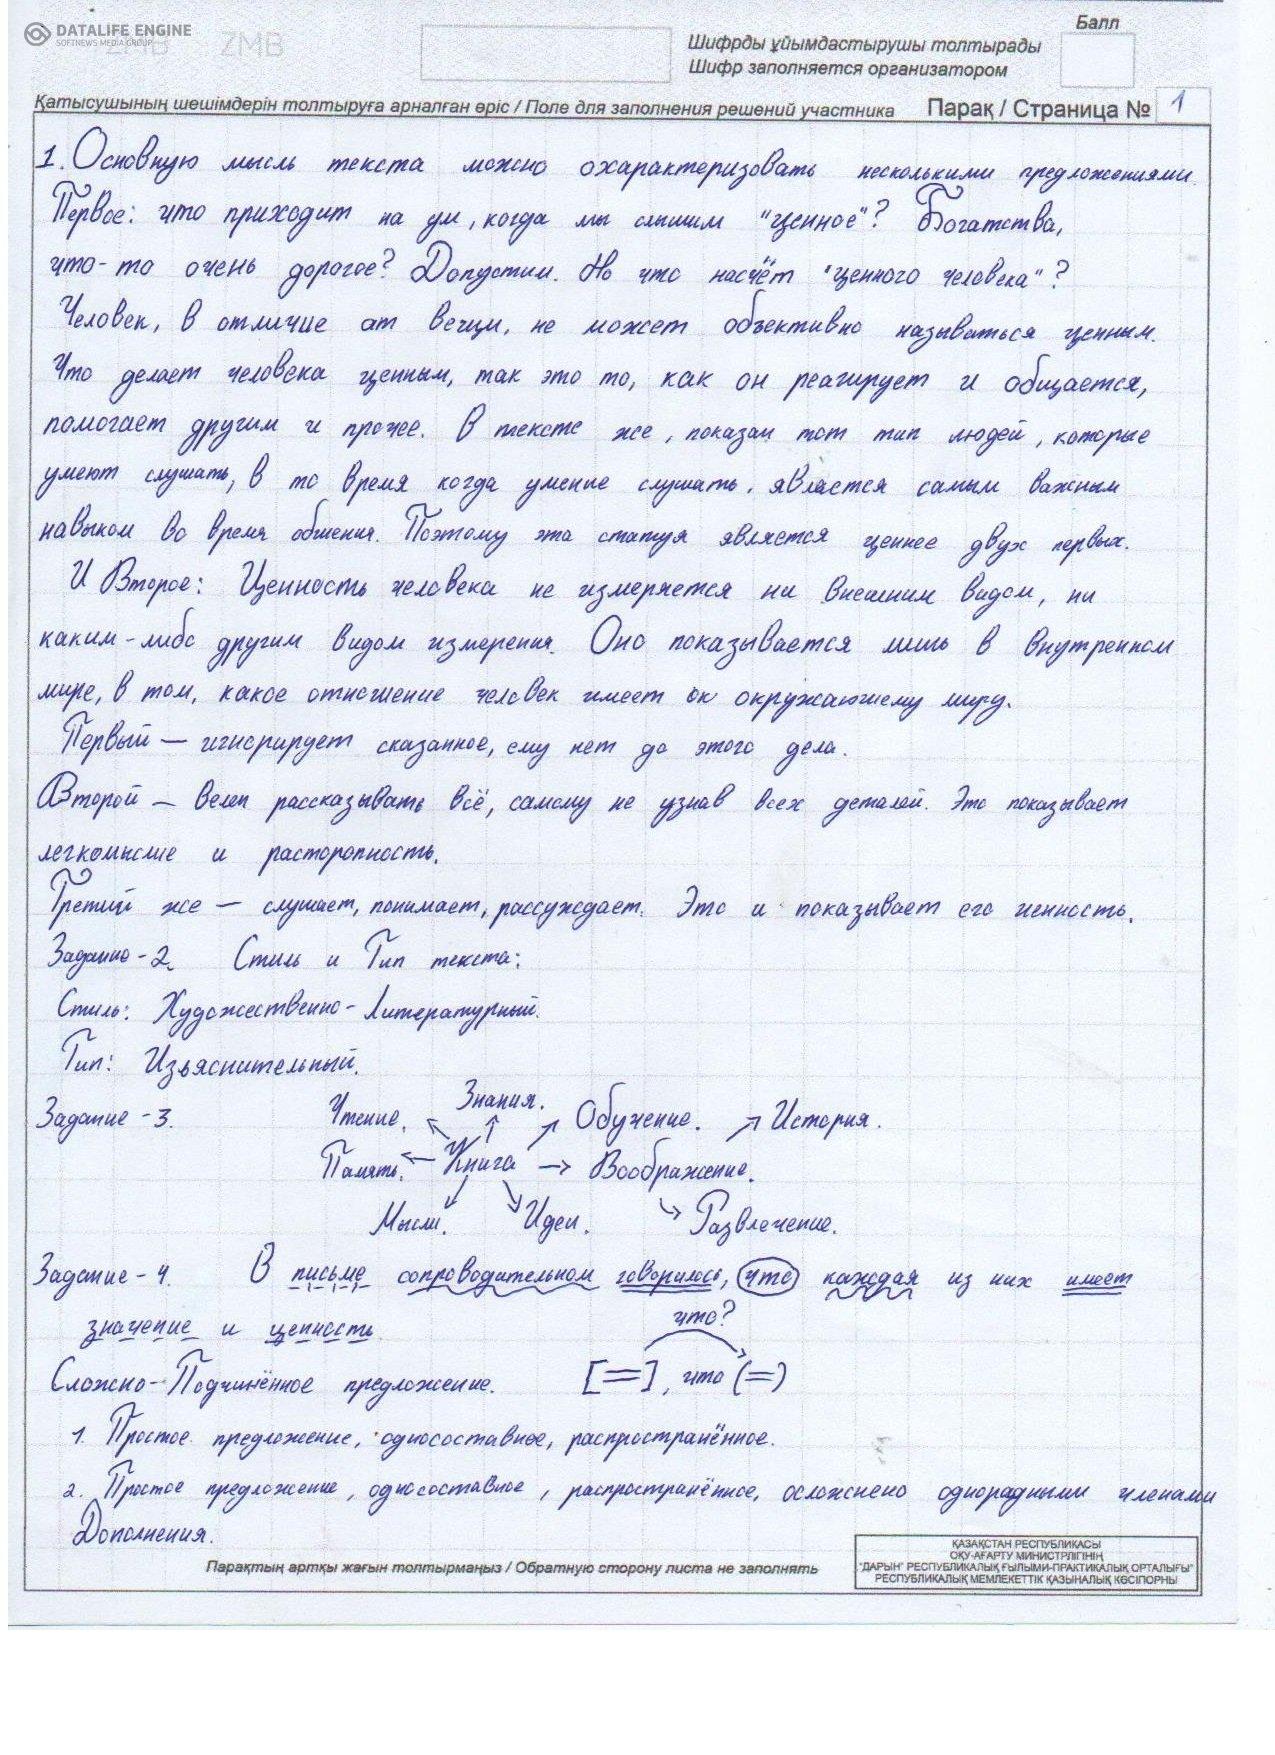 DATALIFE ENGINE
SOFTNEWS MEDIA GROUP
ZMB ZMB
Балл
Шифрды ұйымдастырушы толтырады
Шифр заполняется организатором
Қатысушының шешімдерін толтыруға арналған өріс / Поле для заполнения решений участника Парақ / Страница № 1
1. Основную мысль текста можно охарактеризовать несколькими предложениями.
Первое: что приходит на ум, когда мы слышим "ценное"? Богатства,
что-то очень дорогое? Допустим. Но что насчёт "ценного человека"?
Человек, в отличие от вещи, не может объективно называться ценным.
Что делает человека ценным, так это то, как он реагирует и общается,
помогает другим и прочее. В тексте же, показан тот тип людей, которые
умеют слушать, в то время когда умение слушать, является самым важным
навыком во время общения. Поэтому эта статуя является ценнее двух первых.
И Второе: Ценность человека не измеряется ни внешним видом, ни
каким-либо другим видом измерения. Оно показывается лишь в внутренном
мире, в том, какое отношение человек имеет к окружающему миру.
Первый — игнорирует сказанное, ему нет до этого дела.
Второй — велен рассказывать всё, самому не узнав всех деталей. Это показывает
легкомыслие и расторопность.
Третий же — слушает, понимает, рассуждает. Это и показывает его ценность.
Задание-2. Стиль и Тип текста:
Стиль: Художественно-Литературный.
Тип: Изъяснительный.
Задание-3. Чтение. Знания. Обучение. История.
Память. Книга Воображение.
Мысли. Идеи. Развлечение.
Задание-4. В письме сопроводительном говорилось, что каждая из них имеет
значение и ценность.
что?
Сложно-Подчинённое предложение. [=], что (=)
1. Простое предложение, односоставное, распространённое.
2. Простое предложение, односоставное, распространённое, осложнено однорадными членами
Дополнения.
Парақтың артқы жағын толтырмаңыз / Обратную сторону листа не заполнять
ҚАЗАҚСТАН РЕСПУБЛИКАСЫ
ОҚУ-АҒАРТУ МИНИСТРЛІГІНІҢ
"ДАРЫН" РЕСПУБЛИКАЛЫҚ ҒЫЛЫМИ-ПРАКТИКАЛЫҚ ОРТАЛЫҒЫ"
РЕСПУБЛИКАЛЫҚ МЕМЛЕКЕТТІК ҚАЗЫНАЛЫҚ КӘСІПОРНЫ